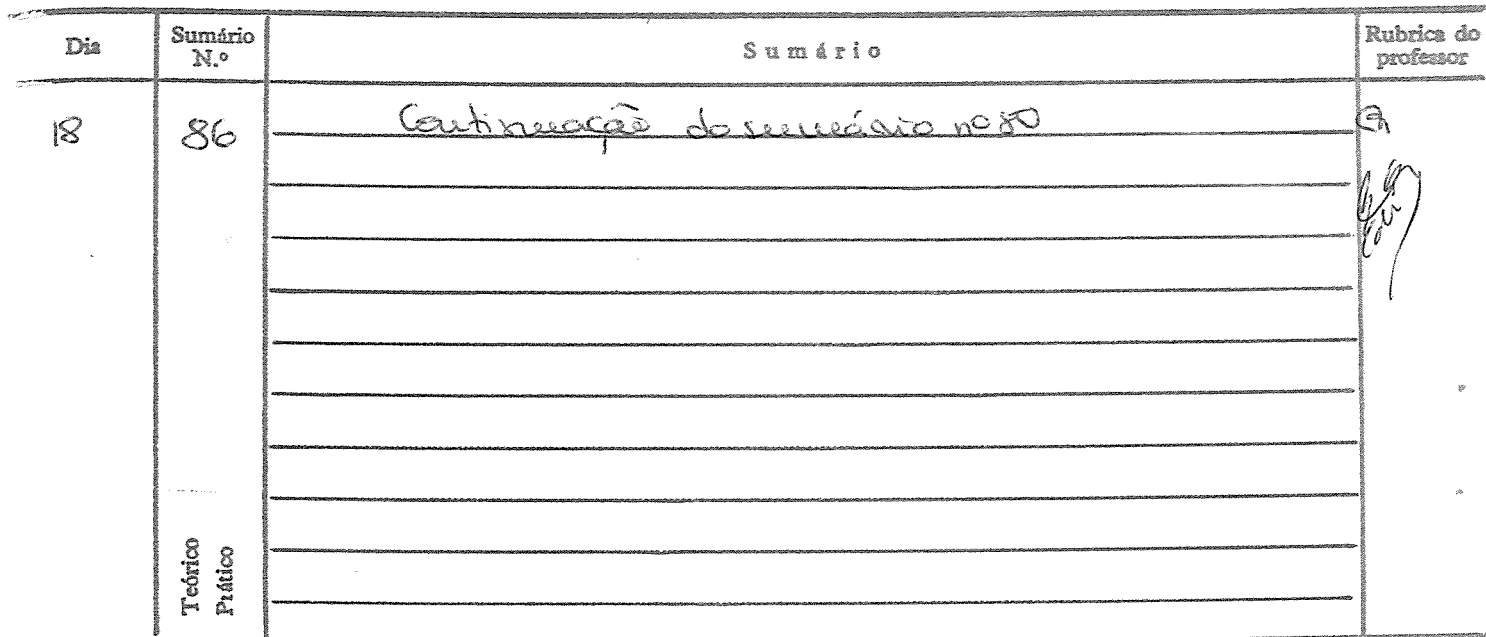 Dia
Sumário N.º
Sumário
Rubrica do professor
18
86
Continuação do sumário nº 80
Teórico
Prático